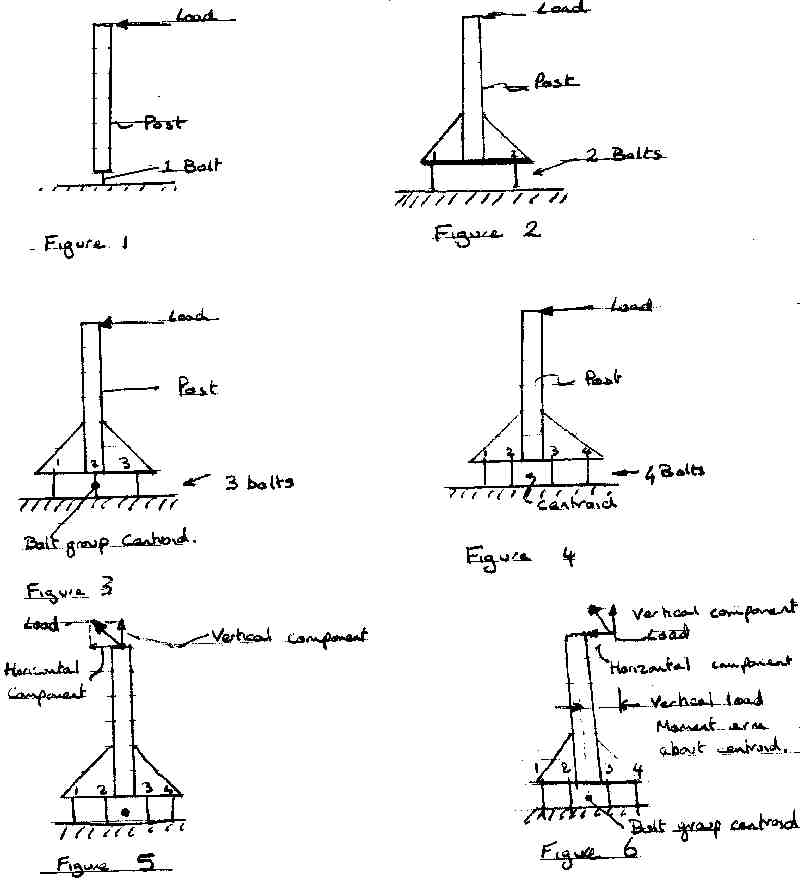 Load
Post
1 Bolt
Figure 1
Load
Post
2
2 Bolts
Figure 2
Load
Post
1 2 3
3 bolts
Bolt group Centroid.
Figure 3
Load
Post
1 2 3 4
4 Bolts
Centroid
Figure 4
Load
Vertical component
Horizontal
component
1 2 3 4
Figure 5
Vertical component
Load
Horizontal component
Vertical load
Moment arm
about centroid.
1 2 3 4
Bolt group centroid
Figure 6